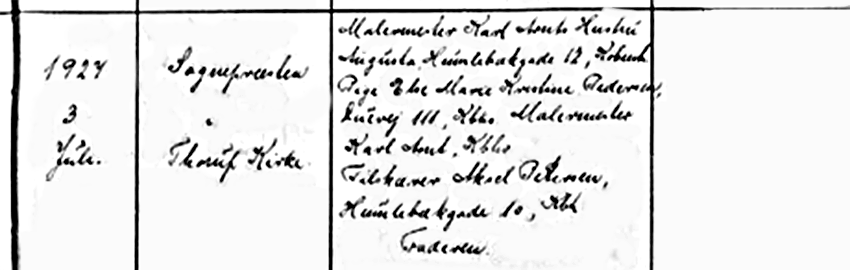 1927
3
Juli.
Sognepræsten
"
Kirke.
Malermester Karl Arnts Hustru
Augusta, Humlebækgade 12, Kbenh
Pige Else Marie Kristine Pedersen,
111, Kbhv. Malermester
Karl Arnt, Kbhv
Tilskærer Aksel Petersen,
Humlebækgade 10, Kbh
Faderen.